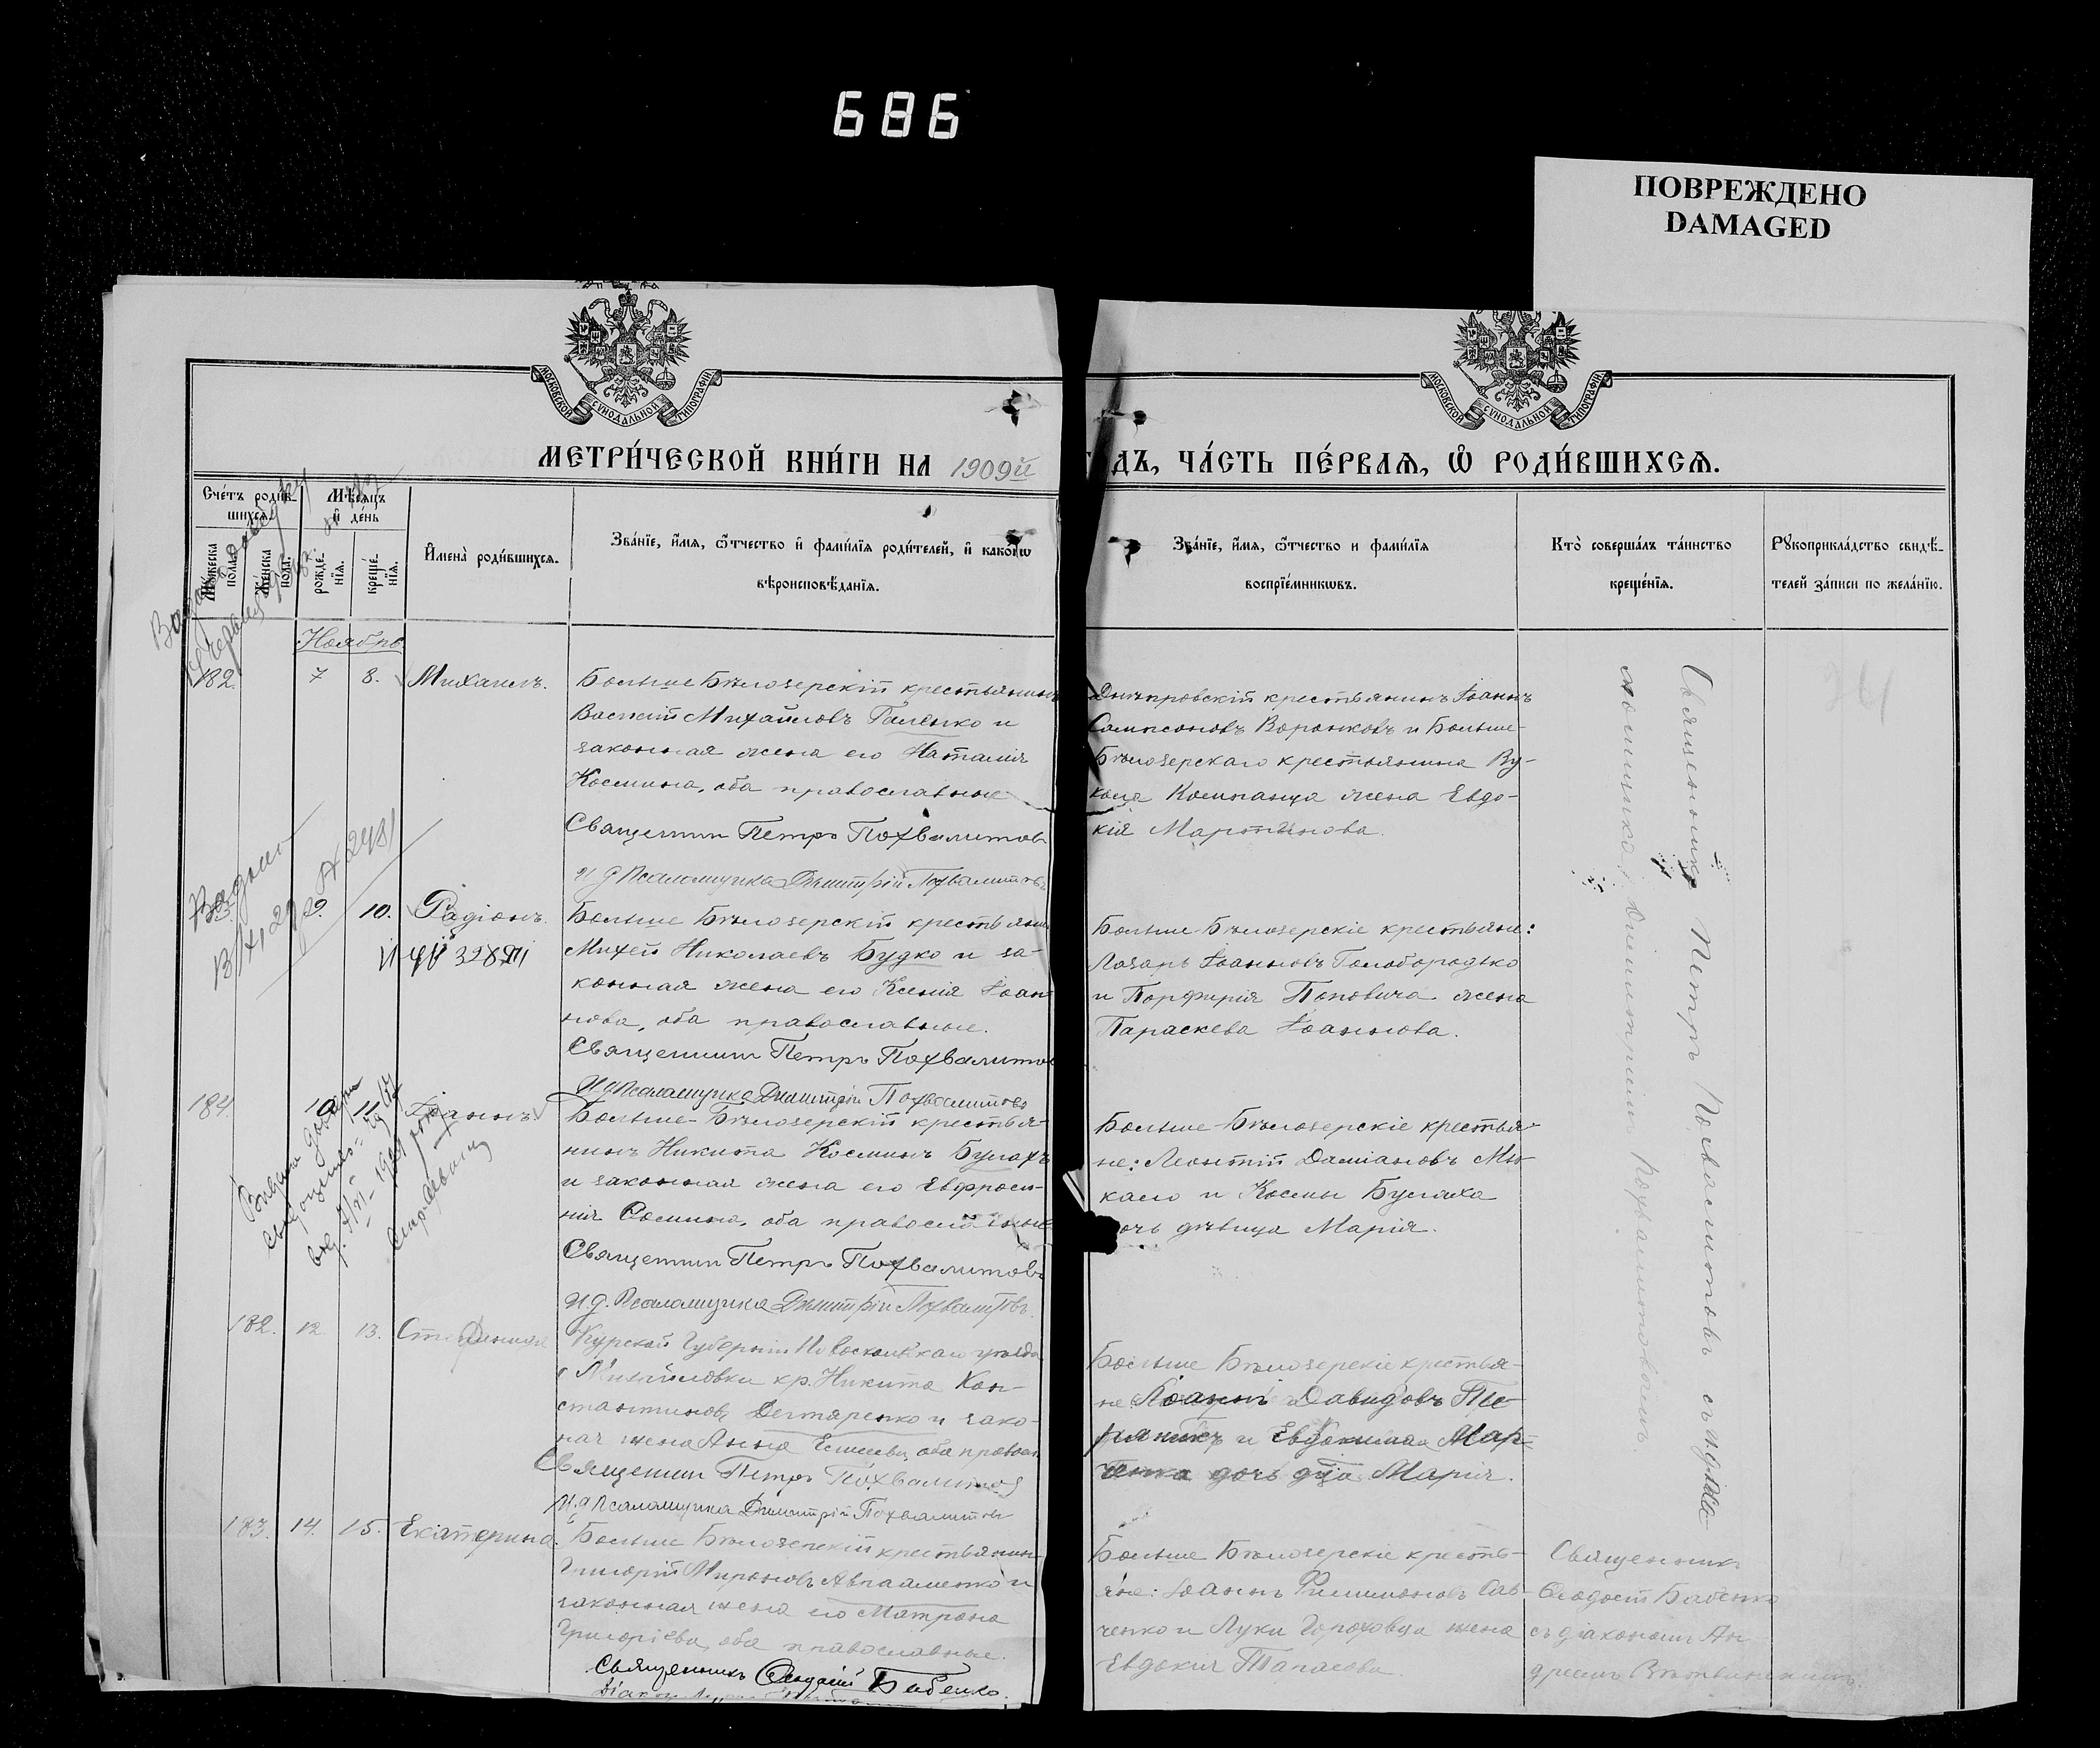 686
ПОВРЕЖДЕНО
DAMAGED
МОСКОВСКОЙ СѴНОДАЛЬНОЙ ТИПОГРАФІИ
МОСКОВСКОЙ СѴНОДАЛЬНОЙ ТИПОГРАФІИ
МЕТРИ́ЧЕСКОЙ КНИ́ГИ НА 1909й
ДЪ, ЧА́СТЬ ПЕ́РВАЯ, Ѽ РОДИ́ВШИХСЯ.
Сче́тъ роди́в-
шихся.
Мѣ́сяцъ
и̂ де́нь
Му́жеска
пола.
Же́нска
пола.
рожде́-
нїя.
креще́-
нїя.
И̂мена̀ роди́вшихся.
Зва́нїе, и̂́мя, ѿ́чество и̂ фами́лїя роди́телей, и̂ како́гѡ
вѣроисповѣ́данїя.
Зва́нїе, и̂́мя, ѿ́чество и фами́лїя
воспрїе́мникѡвъ.
Кто̀ соверша́лъ та́инство
креще́нїя.
Рꙋкоприкла́дство свидѣ́-
телей за́писи по жела́нїю.
Ноябрь
182. 7 8. Михаилъ.
Больше Бѣлозерскій крестьянинъ
Василій Михайловъ Галенко и
законная жена его Наталія
Космина, оба православные
Священник Петръ Похвалитовъ
И д Псаломщика Димитрій Похвалитовъ
Днѣпровскій крестьянинъ Іоаннъ
Сампсоновъ Воронковъ и Больше-
Бѣлозерскаго крестьянина Ву-
кола Компанца жена Евдо-
кія Мартынова.
9. 10. Радіонъ.
Больше Бѣлозерскій крестьянин
Михей Николаевъ Будко и за-
конная жена его Ксенія Іоан-
нова, оба православные.
Священник Петръ Похвалитов
И д Псаломщика Димитрій Похвалитовъ
Больше-Бѣлозерскіе крестьяне:
Лазарь Іоанновъ Голобородько
и Порфирія Поповича жена
Параскева Іоаннова.
184. 10. 11. Іоаннъ
Больше-Бѣлозерскій крестья-
нинъ Никита Косминъ Булахъ
и законная жена его Евфроси-
нія Сомина, оба православные
Священник Петръ Похвалитовъ
И.д. Псаломщика Димитрій Похвалитовъ
Больше-Бѣлозерскіе крестья-
не: Леонтій Даміановъ
и Космы Булаха
дочь дѣвица Марія.
182. 12 13. Стефанида
Курской Губерніи Новоскольскаго уѣзда
с Михайловки кр. Никита Кон-
стантиновъ Дегтяренко и зако-
ная жена Анна оба правосл
Священник Петръ Похвалитов
И.д Псаломщика Димитрій Похвалитовъ
Больше Бѣлозерскіе крестья-
не Іоаннъ Давидовъ
и Евдокима Мар-
ченка дочь д̑ца Марія.
183. 14. 15. Екатерина.
Больше Бѣлозерскій крестьянин
Григорій Мироновъ Авраменко и
законная жена его Матрона
Григоріева, оба православные.
Священникъ Ѳеодосій Бабенко.
Больше Бѣлозерскіе кресть-
яне: Іоаннъ Филимоновъ Сав-
ченко и Луки Гороховца жена
Евдокія Тарасова.
Священникъ
Ѳеодосій Бабенко
съ діакономъ Ан
дреемъ
Священникъ Петръ Похвалитовъ съ и.д. Пса-
ломщика Димитріемъ Похвалитовымъ